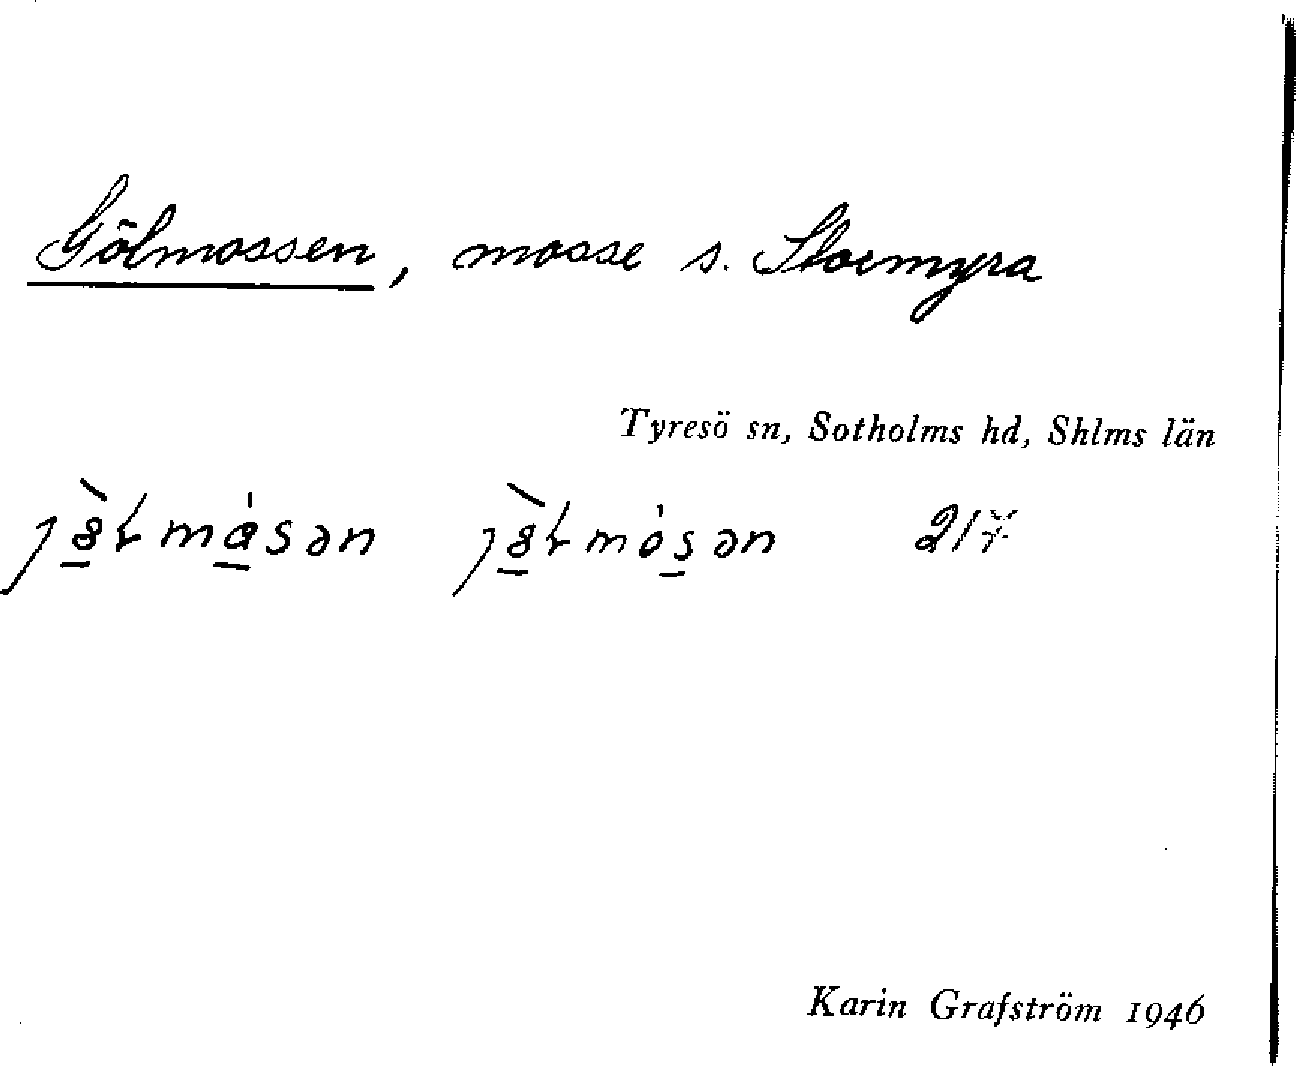 Gölmossen, mosse s. Stormyra
Tyresö sn, Sotholms hd, Shlms län
217
Karin Grafström 1946